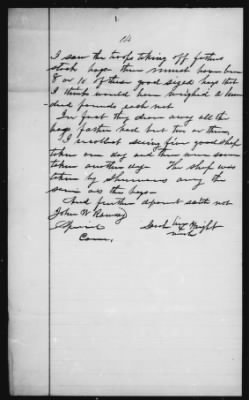 14
I saw the troops taking off fathers
stock hogs there must have been
8 or 10 of them good sized hogs that
I think would have weighed a hun-
dred pounds each net
In fact they drove away all the
hogs father had but two or three,
I recollect seeing five good sheep
taken one day and there were some
taken another day. The sheep was
taken by Shermans army the
same as the hogs
And further deponent saith not
John W Ramsay
Special
Com.
his
X Wright
mark